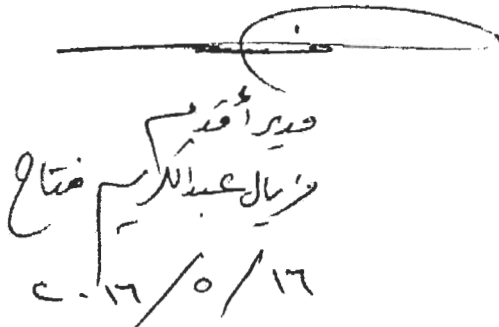 مدير أقدم
فريال عبدالكريم فتاح
٢٠١٦/٥/١٦